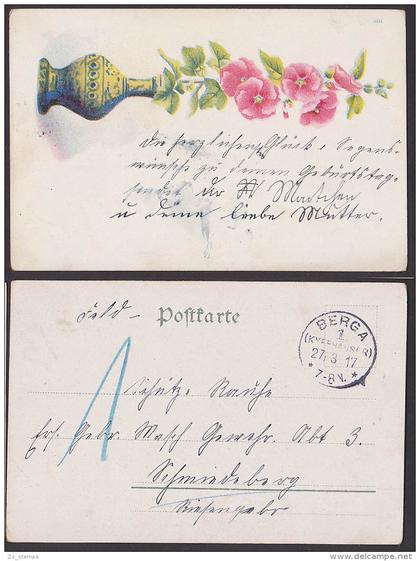 Die herzlichen Glück- Segens-
wünsche zu deinem Geburtstage
sendet dir
u deine liebe Mutter.
Feld- Postkarte
BERGA
1
(KYFFHÄUSER)
27.3.17
* 7-8V. *
1
Schütze Rauhe
Ers. Gebr. Masch Gewehr. Abt 3.
Schmiedeberg
Riesengebr
Zs_stamps
delcampe.net